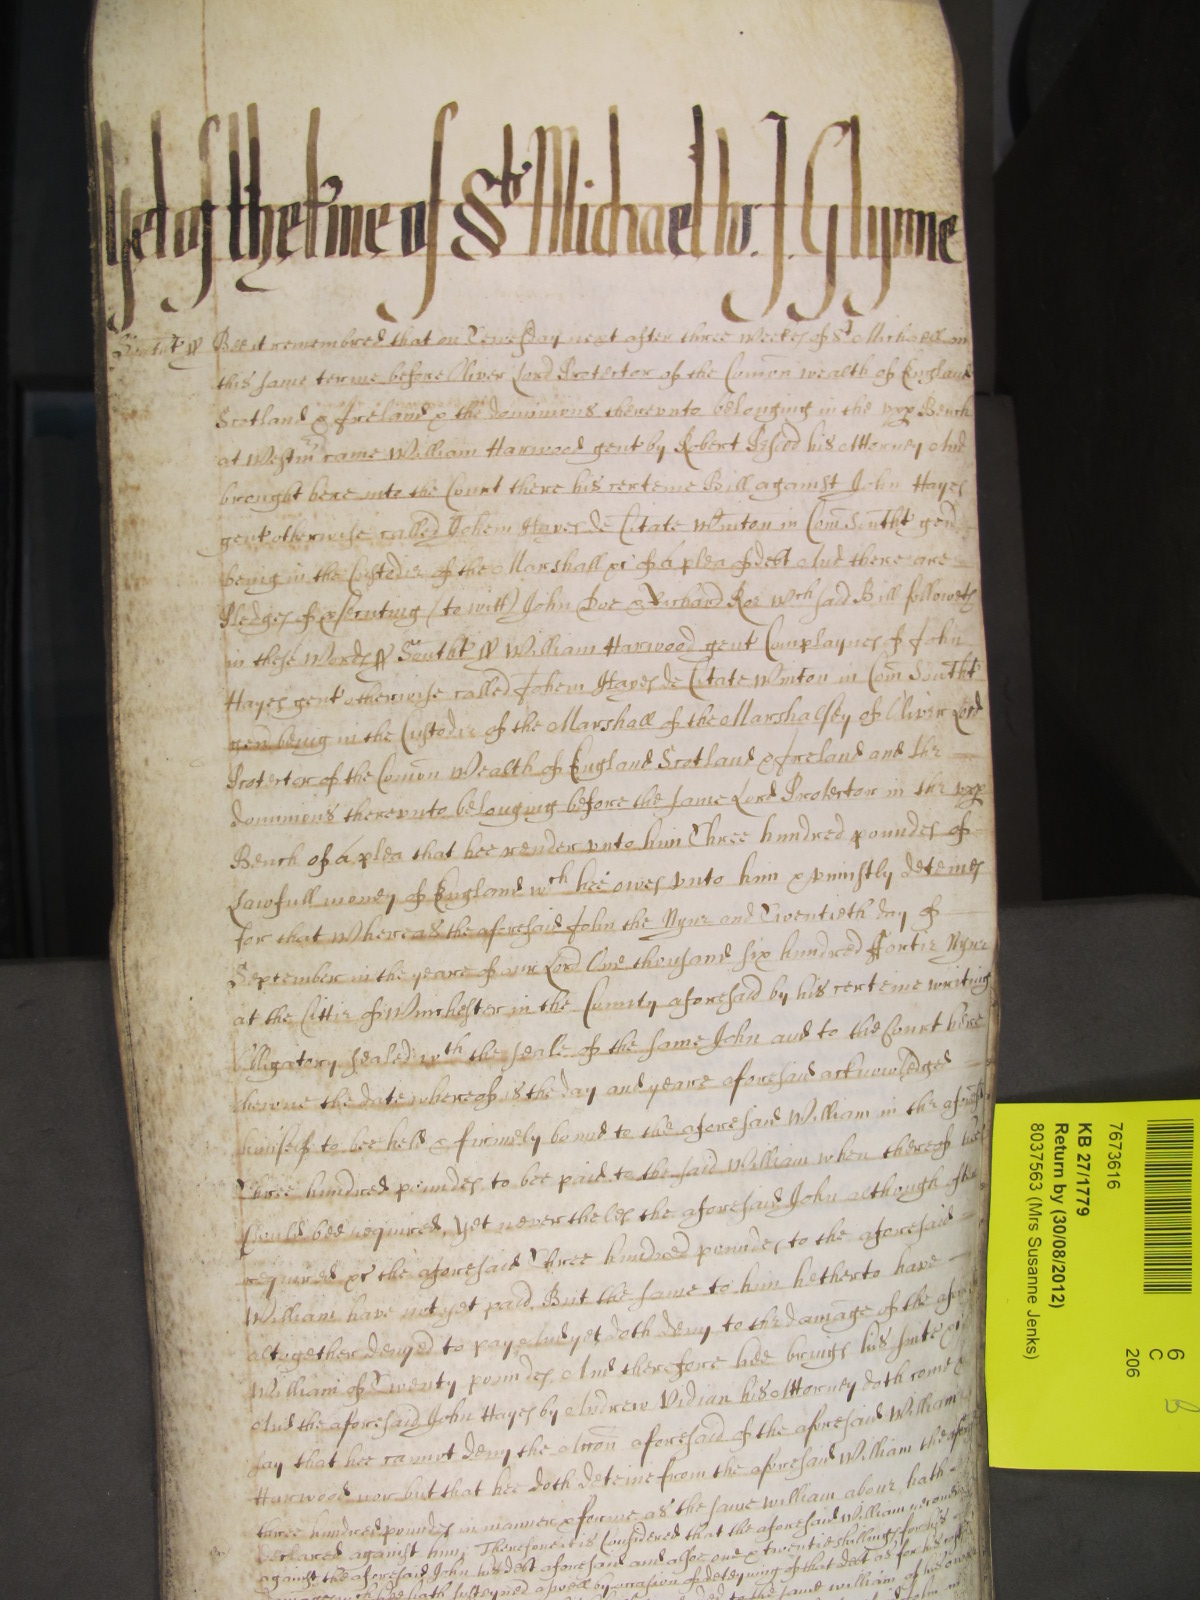 Yet of the time of St Michael by J. Glynne
Southt ss Bee it remembred that on Tewesday next after three weekes of St Michaell in
this same terme before Oliver Lord Protector of the Comon wealth of England
Scotland & Ireland & the dominions thereunto belonging in the upp Bench
at Westm came William Harwood gent by Robert his Attorney And
brought here into the Court there his certeine Bill against John Hayes
gent otherwise called Johem Hayes de Citate Winton in Com Southt gen
being in the Custodie of the Marshall &c of a plea of debt And there are
Pledges of psecuting (to witt) John Doe & Richard Roe wch said Bill followeth
in these words ss Southt ss William Harwood gent Complaynes of John
Hayes gent otherwise called Johem Hayes de Citate Winton in Com Southt
gen being in the Custodie of the Marshall of the Marshalsey of Oliver Lord
Protector of the Comon Wealth of England Scotland & Ireland and the
dominions thereunto belonging before the same Lord Protector in the upp
Bench of a plea that hee render unto him Three hundred poundes of
Lawfull money of England wch hee owes unto him & uniustly deteines
for that Whereas the aforesaid John the Nyne and Twentieth day of
September in the yeare of our Lord One thousand six hundred Fortie Nyne
at the Cittie of Winchester in the County aforesaid by his certeine writing
Obligatory sealed wth the seale of the same John and to the Court here
shewne the date whereof is the day and yeare aforesaid acknowledged
himselfe to bee held & firmely bound to the aforesaid William in the aforesd
Three hundred poundes to bee paid to the said William when thereof hee
should bee required, Yet neverthelesse the aforesaid John although often
required &c the aforesaid Three hundred poundes to the aforesaid
William have not yet paid But the same to him hetherto have
altogether denyed to pay And yet doth deny to the damage of the
William of Twenty poundes And therefore hee brings his suite &c
And the aforesaid John Hayes by Andrew Vidian his Attorney doth come &
say that hee cannot deny the Accon aforesaid of the aforesaid William
Harwood nor but that hee doth deteine from the aforesaid William the
three hundred poundes in manner & forme as the same William above hath
declared against him; Therefore it is Considered that the aforesaid William
against the aforesaid John his debt aforesaid and alsoe one & twentie shillings for his
damages wch hee hath susteyned aswell by occasion of deteyning of that debt as for his
to the same William of his owne
7673616
KB 27/1779
Return by (30/08/2012)
8037563 (Mrs Susanne Jenks)
6
C
206